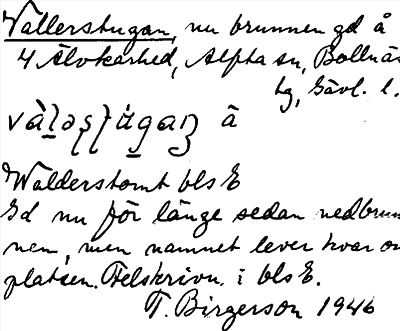 Vallerstugan, nu brunnen gd å
4 Älvkarhed, Alfta sn, Bollnäs
tg, Gävl. l.
å
Wålderstomt bls E
Gd nu för länge sedan nedbrun
nen, men namnet lever kvar on
platsen. Felskrivn. i bls E.
T. Birgerson 1946